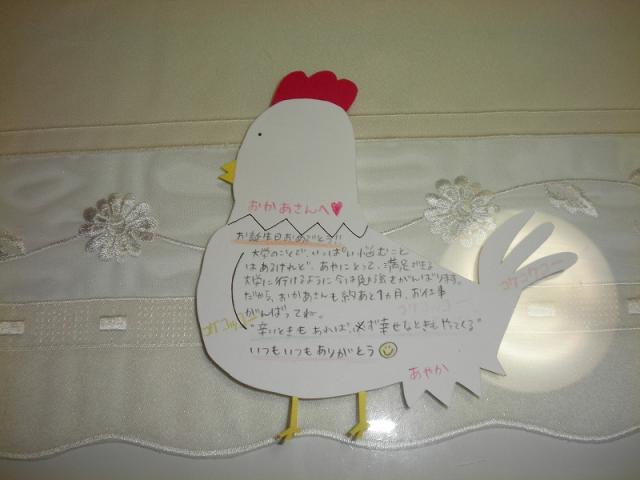 おかあさんへ♥
お誕生日おめでとう!!
大学のことで、いっぱい悩むこと
はあるけれど、あやにとって、満足できる
大学に行けるように今は勉強をがんばります。
だから、おかあさんも約あと1ヵ月、お仕事
がんばってね。
"辛いときもあれば、必ず幸せなときもやってくる"
いつもいつもありがとう
あやか
コケコッコー
コケコッコー
コケコッコー